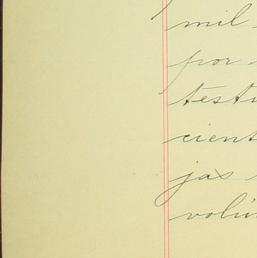 mil
por
testi
cient
jas
volú